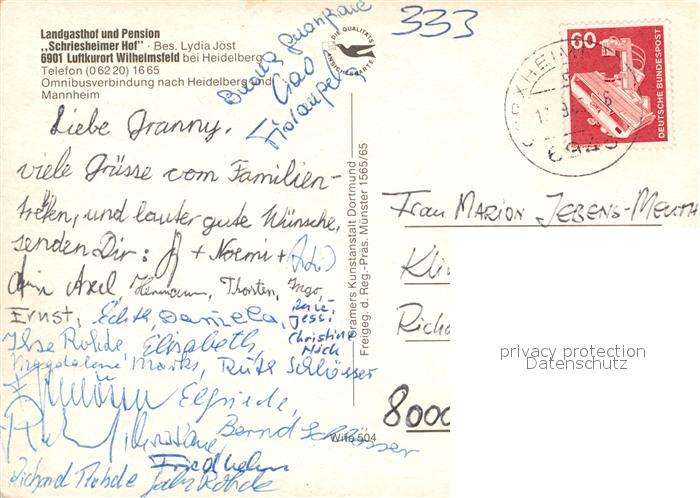 Landgasthof und Pension
„Schriesheimer Hof" · Bes. Lydia Jöst
6901 Luftkurort Wilhelmsfeld bei Heidelberg
Telefon (0 62 20) 16 65
Omnibusverbindung nach Heidelberg und
Mannheim
Ciao
333
DIE QUALITÄTS
ANSICHTSKARTE
60
DEUTSCHE BUNDESPOST
Liebe Granny,
viele Grüsse vom Familien-
treffen, und lauter gute Wünsche,
senden Dir: + Noemi +
Axel Hermann, Thorsten, Ingo,
Ernst, Edith, Daniela, Jessi
Christina
Ilse Rohde Elisabeth,
Magdalene Martes, Ruth Schlösser
Elfriede,
Bernd Schlösser
Friedhelm
Richard Rohde
Cramers Kunstanstalt Dortmund
Freigeg. d. Reg.-Präs. Münster 1565/65
Wilfo 504
Frau MARION JEBENS-MEUTH
Kli
Richa
8000
privacy protection
Datenschutz